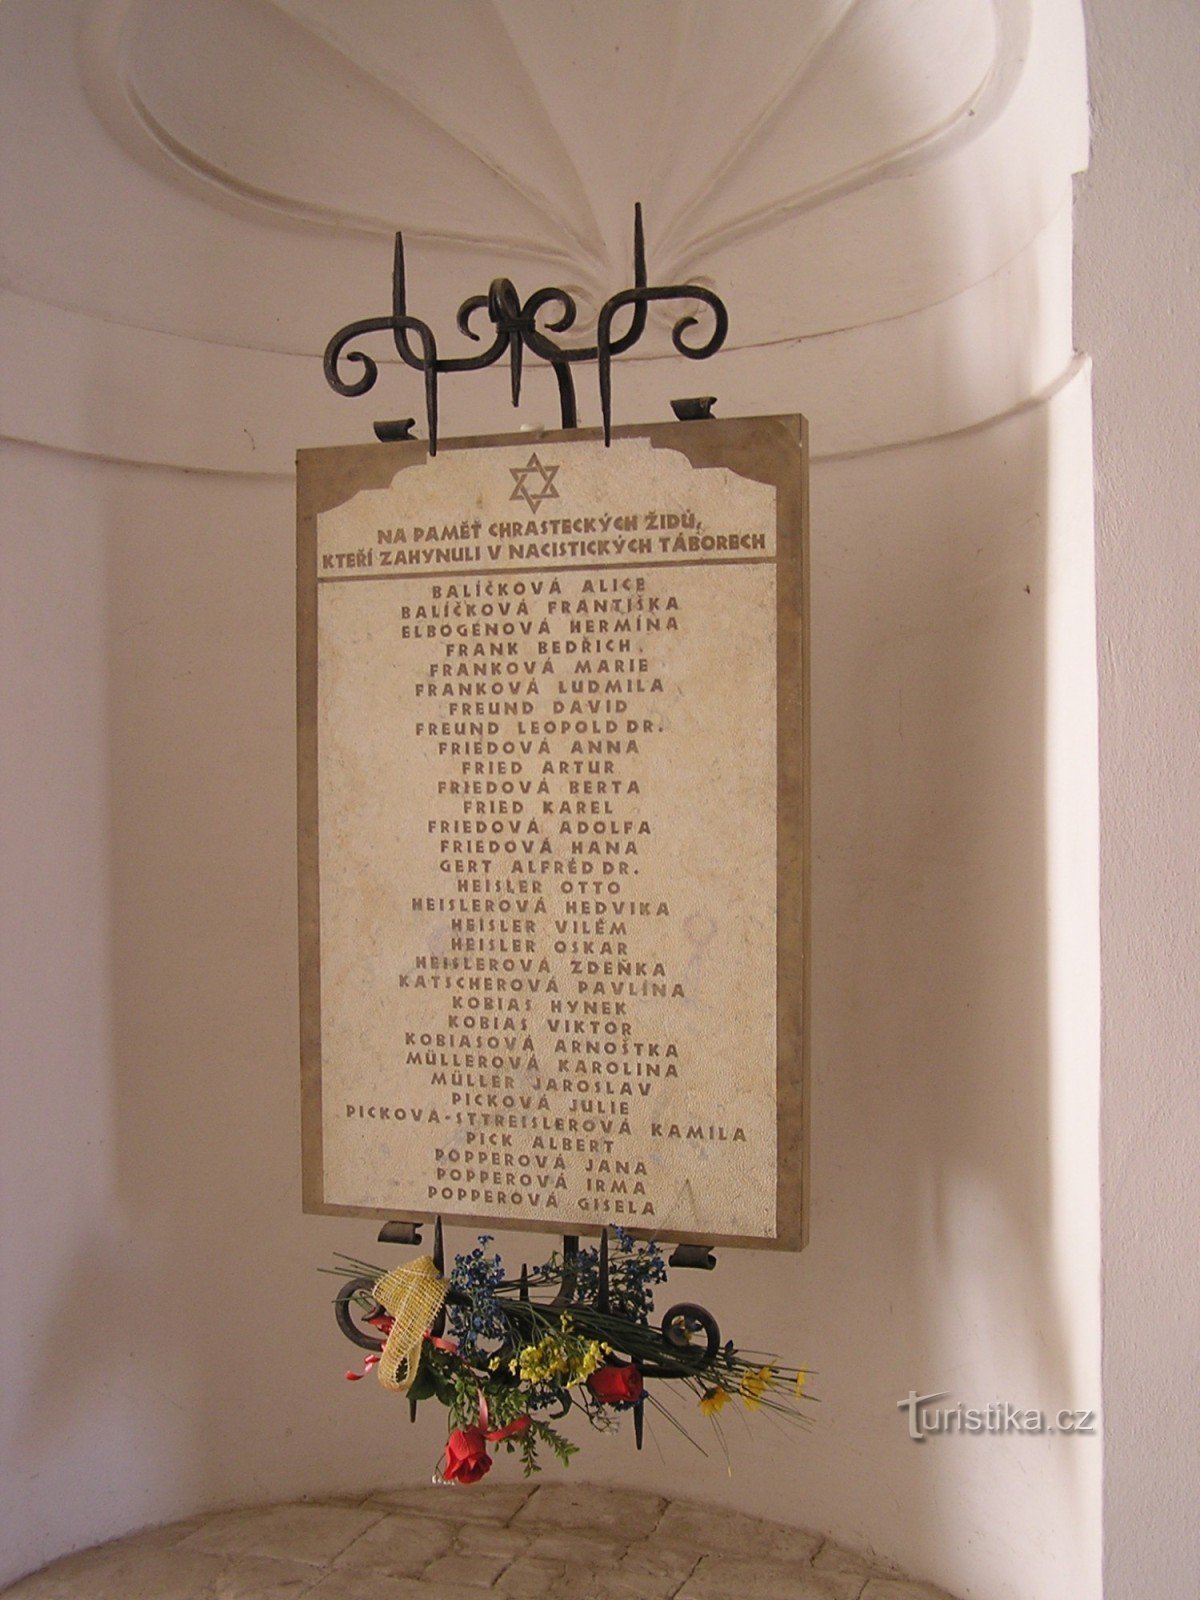 NA PAMĚŤ CHRASTECKÝCH ŽIDŮ,
KTEŘÍ ZAHYNULI V NACISTICKÝCH TÁBORECH
BALÍČKOVÁ ALICE
BALÍČKOVÁ FRANTIŠKA
ELBOGENOVÁ HERMÍNA
FRANK BEDŘICH
FRANKOVÁ MARIE
FRANKOVÁ LUDMILA
FREUND DAVID
FREUND LEOPOLD DR.
FRIEDOVÁ ANNA
FRIED ARTUR
FRIEDOVÁ BERTA
FRIED KAREL
FRIEDOVÁ ADOLFA
FRIEDOVÁ HANA
GERT ALFRÉD DR.
HEISLER OTTO
HEISLEROVÁ HEDVIKA
HEISLER VILÉM
HEISLER OSKAR
HEISLEROVÁ ZDEŇKA
KATSCHEROVÁ PAVLÍNA
KOBIAS HYNEK
KOBIAS VIKTOR
KOBIASOVÁ ARNOŠTKA
MÜLLEROVÁ KAROLINA
MÜLLER JAROSLAV
PICKOVÁ JULIE
PICKOVÁ-STTREISLEROVÁ KAMILA
PICK ALBERT
POPPEROVÁ JANA
POPPEROVÁ IRMA
POPPEROVÁ GISELA
Turistika.cz